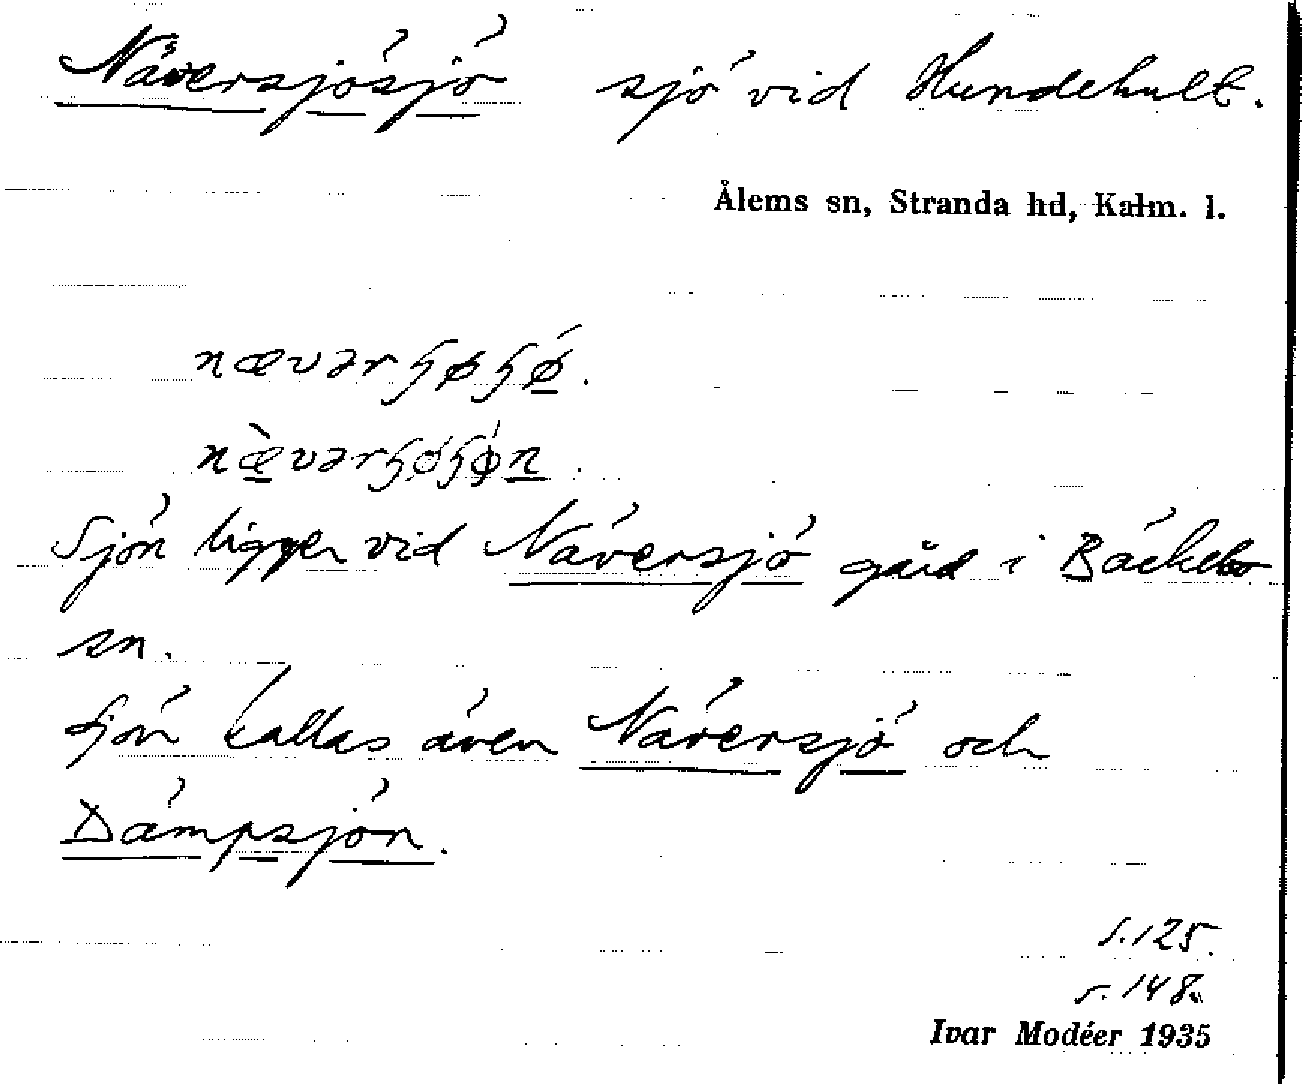 Näversjösjö sjö vid Hundehult.
Ålems sn, Stranda hd, Kalm. l.
nævərʃøʃǿ.
næ̀vərʃøʃǿn.
Sjön ligger vid Näversjö gård i Bäckebo
sn.
Sjön kallas även Näversjö och
Dämpsjön.
s. 125.
s. 148.
Ivar Modéer 1935